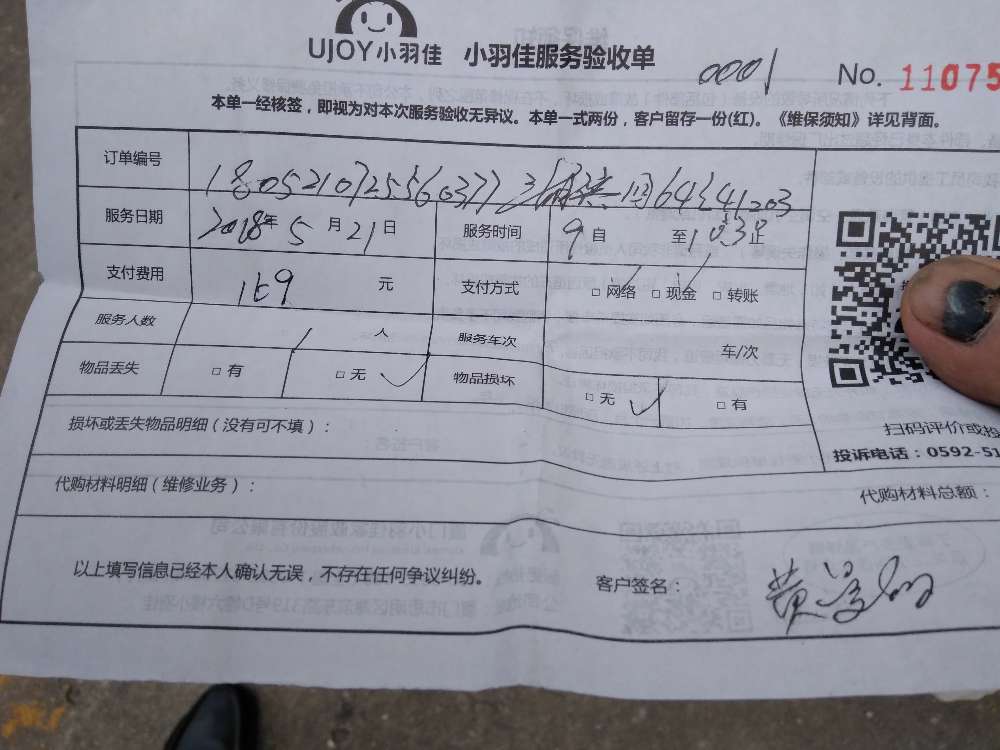 UJOY小羽佳 小羽佳服务验收单 0001 No. 11075
本单一经核签，即视为对本次服务验收无异议。本单一式两份，客户留存一份(红)。《维保须知》详见背面。
订单编号
服务日期 2018年 5 月 21 日 服务时间 9 自 至
支付费用 元 支付方式 □ 网络 □ 现金 □ 转账
服务人数 1 人 服务车次 车/次
物品丢失 □ 有 □ 无 ✓ 物品损坏 □ 无 ✓ □ 有
扫码评价或投
损坏或丢失物品明细（没有可不填）：
投诉电话：0592-51
代购材料明细（维修业务）： 代购材料总额：
以上填写信息已经本人确认无误，不存在任何争议纠纷。 客户签名：